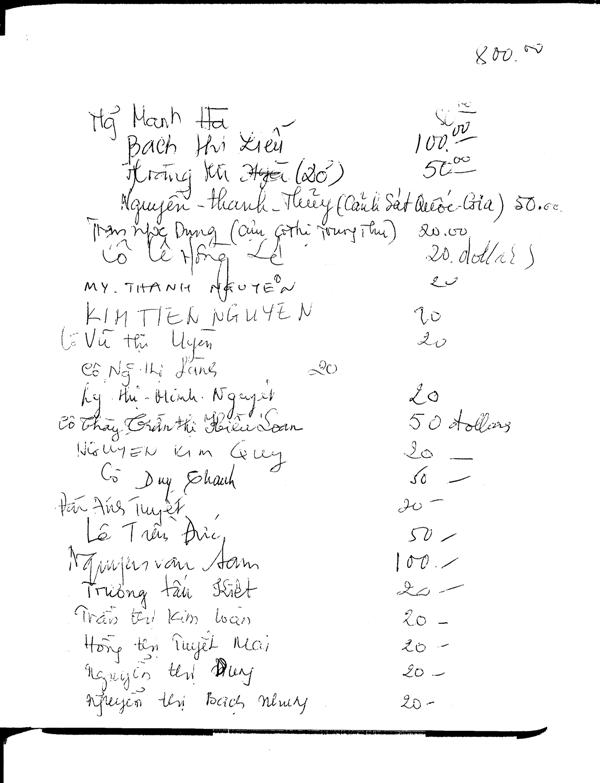 800.00
Hạnh Hà
Bạch thị Liễu 100.00
Hoàng thị (20) 50.00
Nguyễn-thanh-Thủy (Cảnh Sát Quốc-Gia) 50.00
Trần Ngọc Dung (Trung Thu) 20.00
Cô Lê Hồng Lê 20. dollars
MY. THANH NGUYỄN 20
KIM TIEN NGUYEN 20
Cô Vũ thị Uyên 20
Cô Ngô thị 20
Lý thị-Minh-Nguyệt 20
Cô Thầy Trần thị Kiều Loan 50 dollars
NGUYEN Kim Quy 20 —
Cô Duy Thanh 50 —
Ánh Tuyết 20 -
Lê Trần Đức 50 -
Nguyen van Sam 100.-
Trương tấn Kiệt 20 -
Trần thị Kim Loan 20 -
Hồng thị Tuyết Mai 20 -
Nguyễn thị Dung 20 -
Nguyễn thị Bạch Nhung 20 -